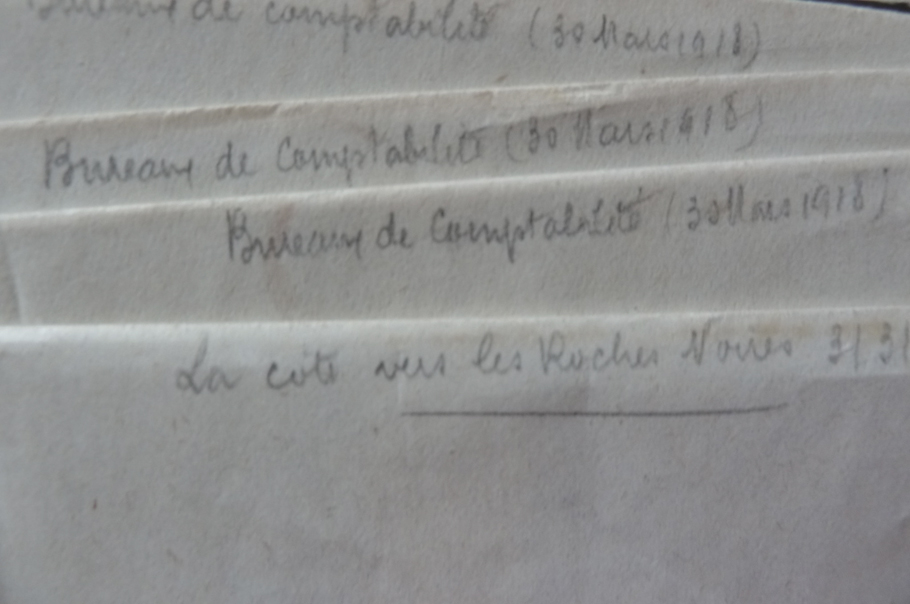 Bureaux de comptabilité (30 Mars 1918)
Bureaux de Comptabilité (30 Mars 1918)
Bureaux de Comptabilité (30 Mars 1918)
La côte vers les Roches Noires 31 3